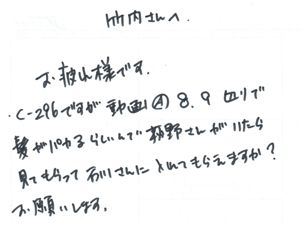 竹内さんへ
お疲れ様です。
・C-296ですが 動画Ⓐ 8.9 辺りで
髪がパカるらしいんで 萩野さんがいたら
見てもらって 石川さんに 入れてもらえますか?
お願いします。